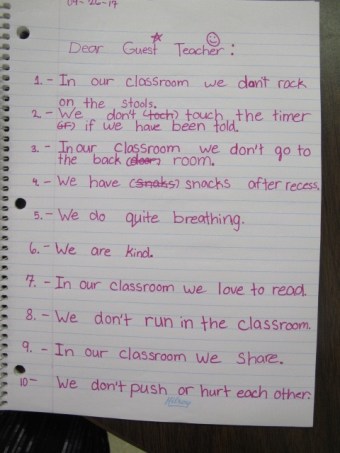 09-26-17
Dear Guest Teacher:
1.- In our classroom we don't rock
on the stools.
2.- We don't (toch) touch the timer
(if) if we have been told.
3.- In our classroom we don't go to
the back (door) room.
4.- We have (snaks) snacks after recess.
5.- We do quite breathing.
6.- We are kind.
7.- In our classroom we love to read.
8.- We don't run in the classroom.
9.- In our classroom we share.
10- We don't push or hurt each other.